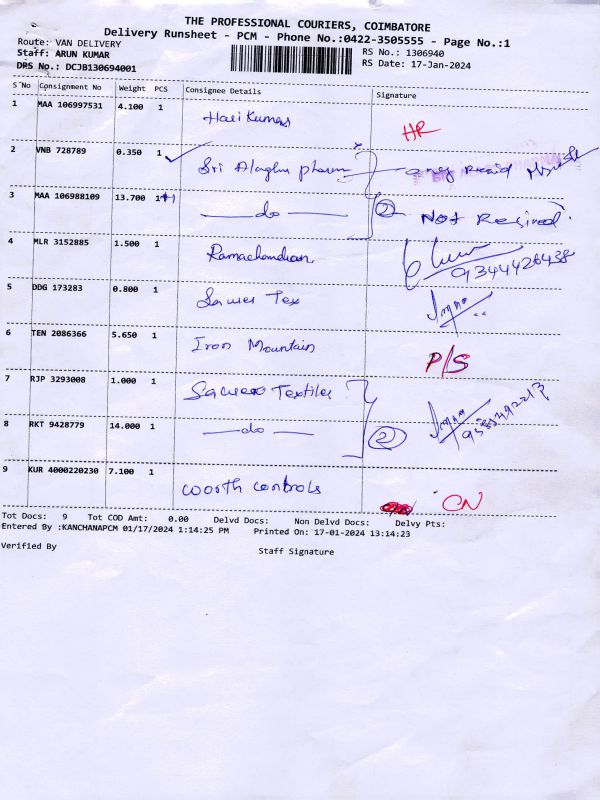 THE PROFESSIONAL COURIERS, COIMBATORE
Delivery Runsheet - PCM - Phone No.:0422-3505555 - Page No.:1
Route: VAN DELIVERY RS No.: 1306940
Staff: ARUN KUMAR RS Date: 17-Jan-2024
DRS No.: DCJB130694001
S No Consignment No Weight PCS Consignee Details Signature
1 MAA 106997531 4.100 1 Hari Kumar HR
2 VNB 728789 0.350 1 Sri Alaghu pharm
3 MAA 106988109 13.700 1 do 2 Not Received.
4 MLR 3152885 1.500 1 Ramachandran 9344426438
5 DDG 173283 0.800 1 Tex
6 TEN 2086366 5.650 1 Iron Mountain P/S
7 RJP 3293008 1.000 1 Textiles
8 RKT 9428779 14.000 1 do 2
9 KUR 4000220230 7.100 1 Woorth controls CN
Tot Docs: 9 Tot COD Amt: 0.00 Delvd Docs: Non Delvd Docs: Delvy Pts:
Entered By :KANCHANAPCM 01/17/2024 1:14:25 PM Printed On: 17-01-2024 13:14:23
Verified By Staff Signature